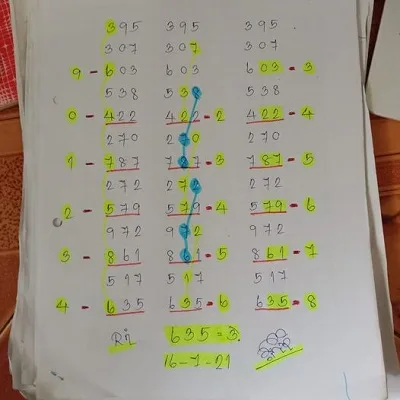 395 395 395
307 307 307
9 - 603 603 603 - 3
538 538 538
0 - 422 422 - 2 422 - 4
270 270 270
1 - 787 727 - 3 787 - 5
272 272 272
2 - 579 579 - 4 579 - 6
972 972 972
3 - 861 861 - 5 861 - 7
517 517 517
4 - 635 635 - 6 635 - 8
635 = 3.
16-7-21